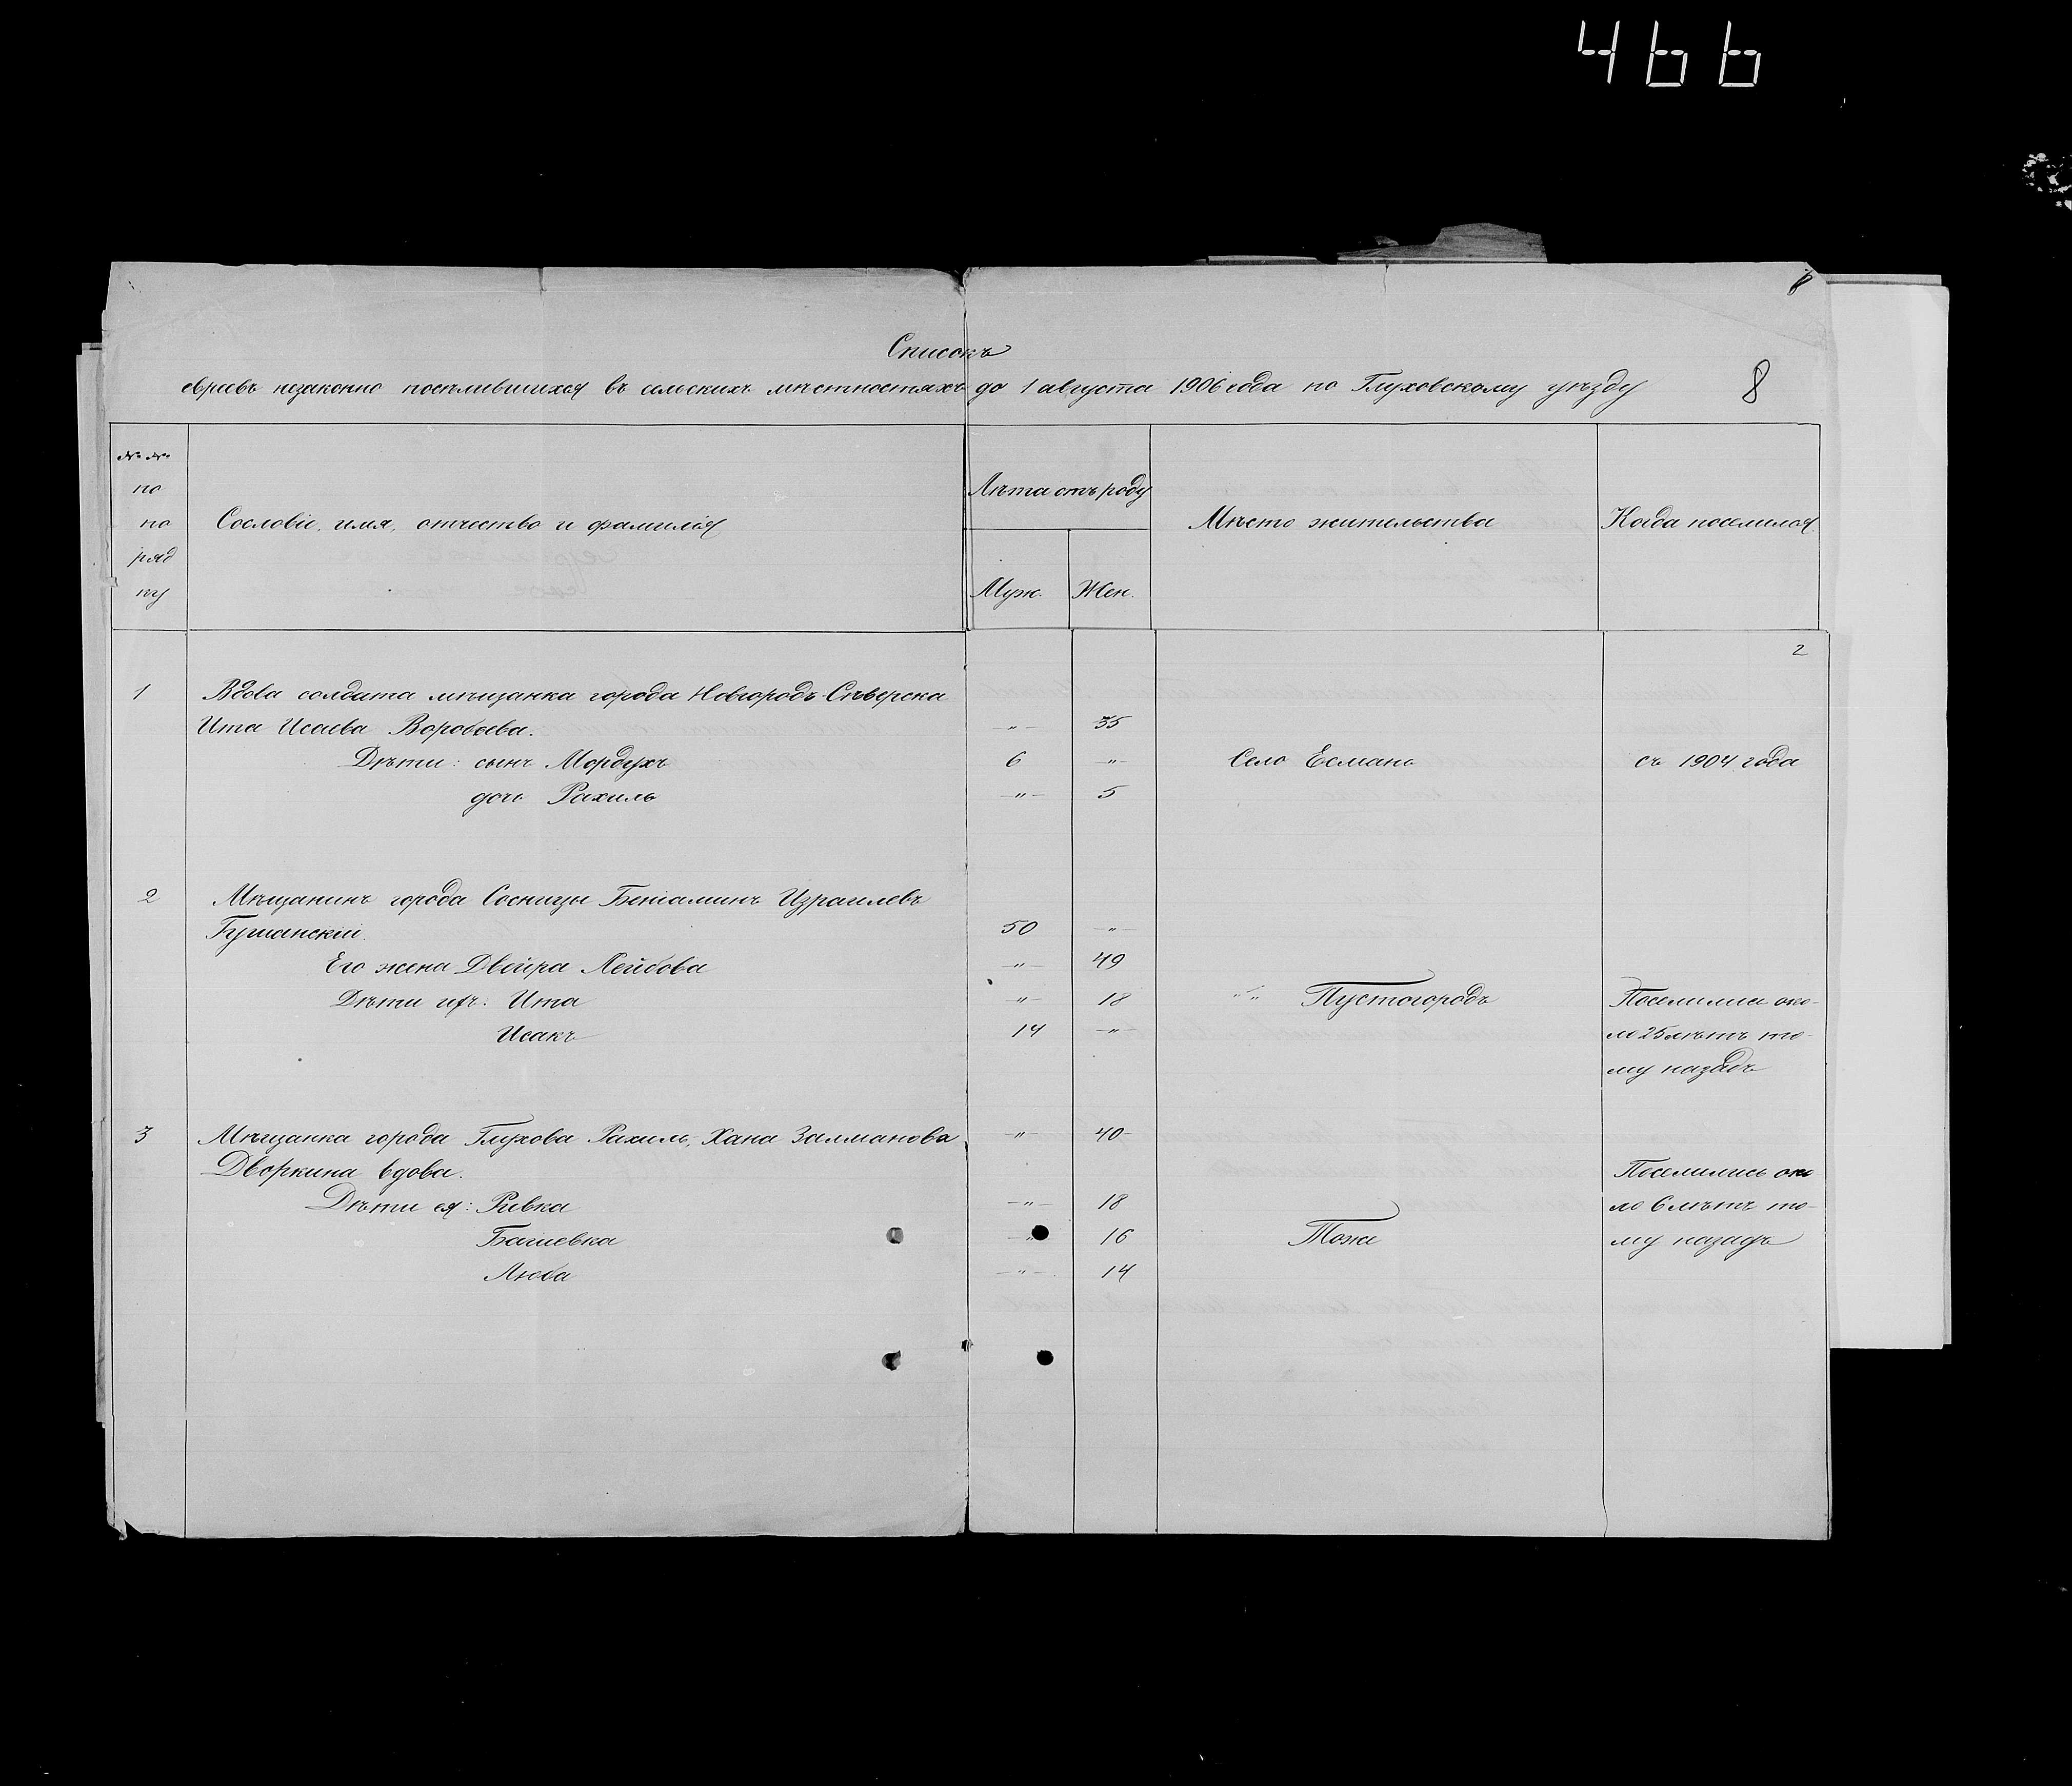 466
8
Списокъ
евреевъ незаконно поселившихся въ сельскихъ мѣстностяхъ до 1 августа 1906 года по Глуховскому уѣзду
8
№№ по порядку
Сословіе, имя, отчество и фамилія
Лѣта отъ роду
Муж. Жен.
Мѣсто жительства
Когда поселился
2
1 Вдова солдата мѣщанка города Новгородъ-Сѣверска
Ита Исаева Воробьева. -"- 35
Дѣти: сынъ Мордухъ 6 -"- Село Есмань съ 1904 года
дочь Рахиль -"- 5
2 Мѣщанинъ города Сосницы Беніаминъ Израилевъ
50 -"-
Его жена Двейра Лейбова -"- 49
Дѣти ихъ: Ита -"- 18 " " Пустогородъ Поселились око-
Исакъ 14 -"- ло 25 лѣтъ то-
му назадъ
3 Мѣщанка города Глухова Рахиль, Хана Залманова -"- 40
Дворкина вдова. Поселились око
Дѣти ея: Ривка -"- 18 ло 6 лѣтъ то-
Башевка -"- 16 Тоже му назадъ
Люба -"- 14